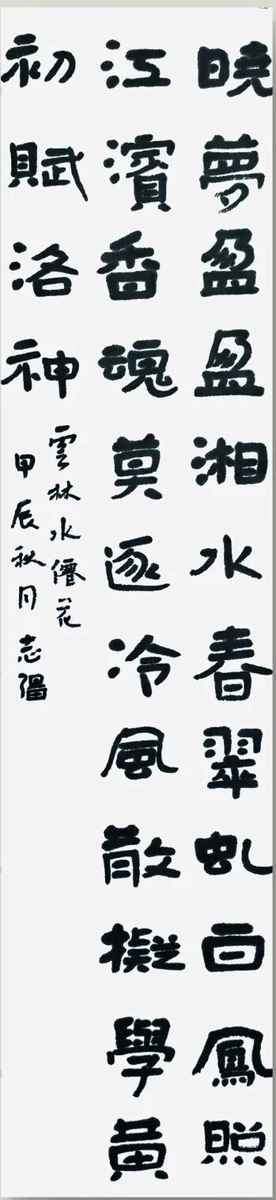 曉夢盈盈湘水春翠虬白鳳照
江濱香魂莫逐冷風散擬學黃
初賦洛神
雲林水僊花
甲辰秋月志